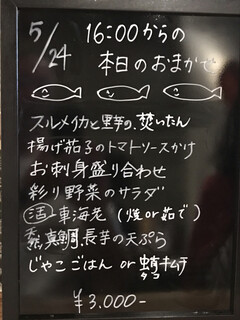 5/24
16:00からの
本日のおまかせ
スルメイカと里芋の炊いたん
揚げ茄子のトマトソースかけ
お刺身盛り合わせ
彩り野菜のサラダ
活 車海老 (焼or茹で)
真鯛、長芋の天ぷら
じゃこごはん or 蛸キムチ
タコ
¥3,000-